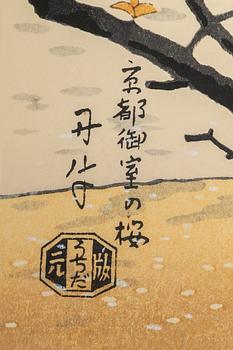 京都御室の桜
丹半
版
うちだ
元